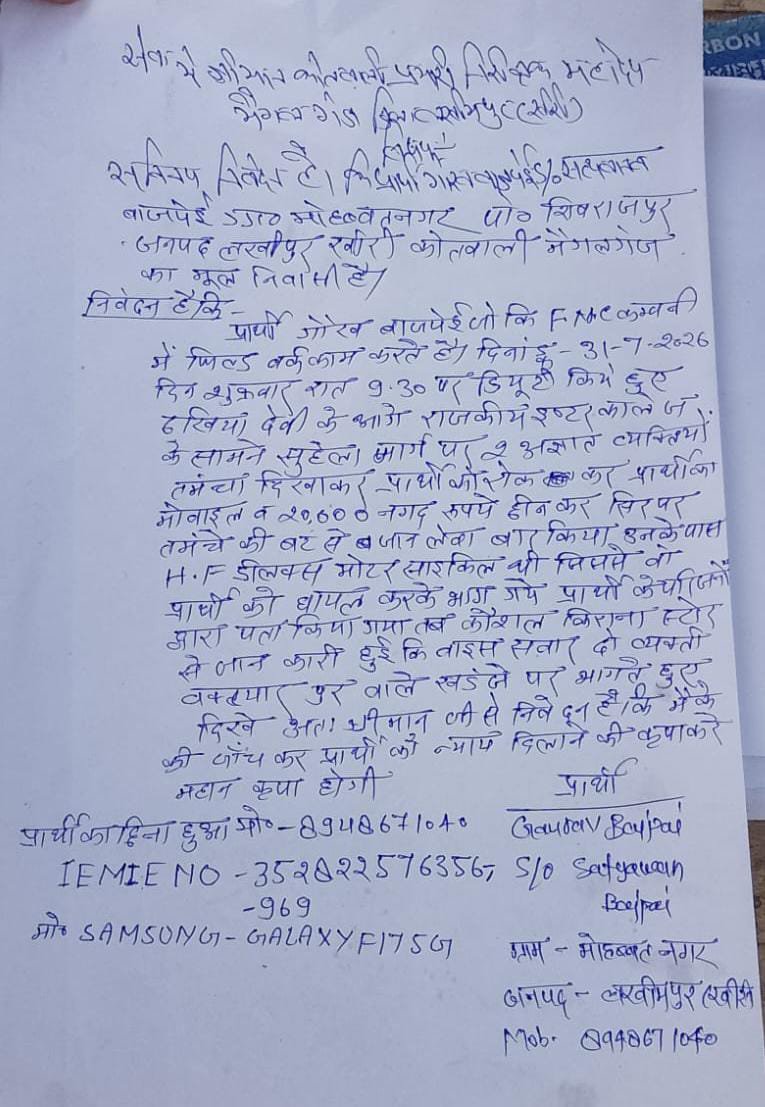 सेवा में श्रीमान कोतवाली प्रभारी निरीक्षक महोदय
मैगलगंज जिला लखीमपुर (खीरी)
सविनय निवेदन है। कि प्रार्थी गौरव बाजपेई S/o सत्यवान
बाजपेई ग्रा० मोहब्बतनगर पो० शिवराजपुर
जनपद लखीपुर खीरी कोतवाली मैगलगंज
का मूल निवासी है।
निवेदन है कि -
प्रार्थी गौरव बाजपेई जो कि F.M.C कम्पनी
में फिल्ड वर्क काम करते है। दिनांक - 31-7-2026
दिन शुक्रवार रात 9.30 पर डियूटी किये हुए
देवी के आगे राजकीय इण्टर कालेज
के सामने सुहेला मार्ग पर 2 अज्ञात व्यक्तियों
तमंचा दिखाकर प्रार्थी को रोक कर प्रार्थी का
मोबाइल व 20,600 नगद रुपये छीन कर सिर पर
तमंचे की बट से जान लेवा वार किया उनके पास
H.F डीलक्स मोटर साइकिल थी जिससे वो
प्रार्थी को घायल करके भाग गये प्रार्थी के परिजनों
द्वारा पता किया गया तब कौशल किराना स्टोर
से जान कारी हुई कि बाइस सवार दो व्यक्ती
वक्त्यार पुर वाले खडंजे पर भागते हुए
दिखे अतः श्रीमान जी से निवेदन है। कि मौके
की जाँच कर प्रार्थी को न्याय दिलाने की कृपा करे
महान कृपा होगी
प्रार्थी
प्रार्थी का छिना हुआ मो० - 8948671040 Gaurav Bajpai
IEMIE NO - 352822576356, S/o Satyawan
-969 Bajpai
मो० SAMSUNG - GALAXY F17 5G
ग्राम - मोहब्बत नगर
जनपद - लखीमपुर (खीरी)
Mob. 8948671040
RBON